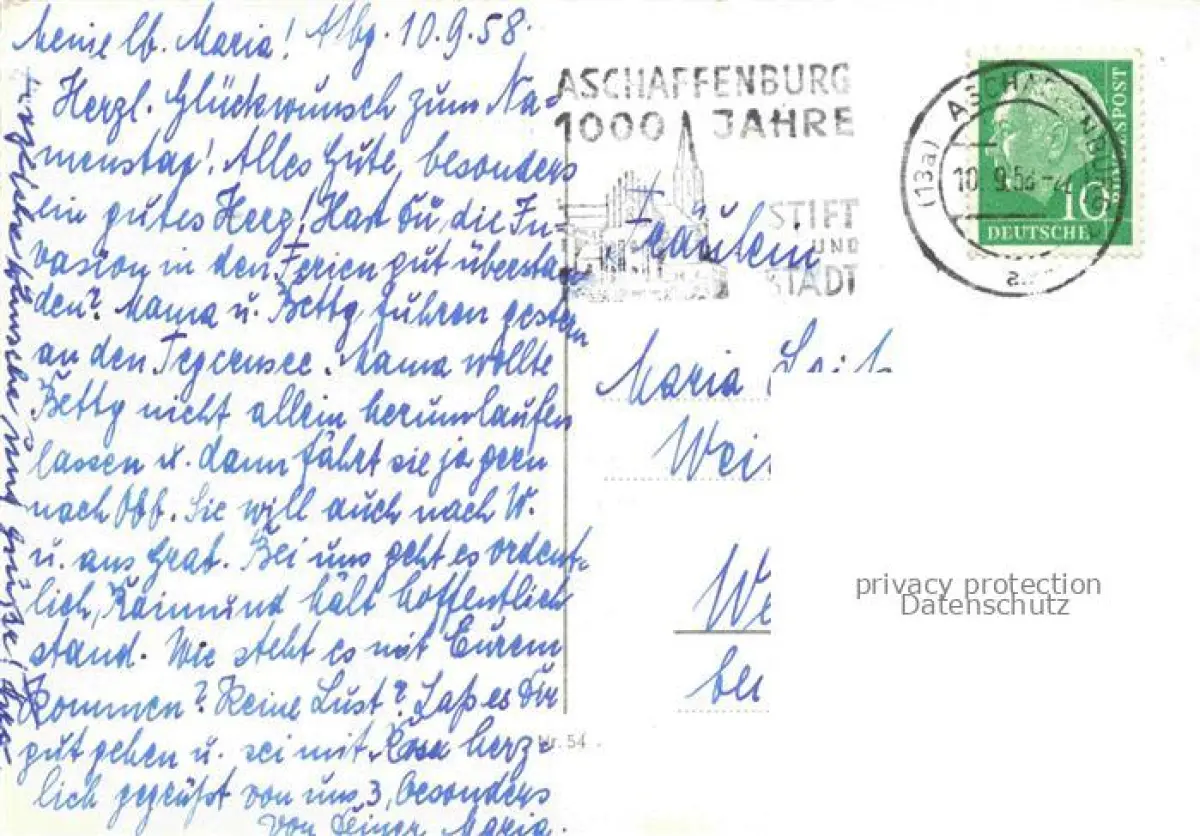 Meine lb. Maria! Abg. 10.9.58.
Herzl. Glückwunsch zum Na-
menstag! Alles Gute, besonders
ein gutes Herz! Hast Du die In-
vasion in den Ferien gut überstan
den? Mama u. Betty fuhren gestern
an den Tegernsee. Mama wollte
Betty nicht allein herumlaufen
lassen u. dann fährt sie ja gern
nach Obb. Sie will auch nach W.
u. ans Grab. Bei uns geht es ordent-
lich, Raimund hält hoffentlich
stand. Wie steht es mit Eurem
Kommen? Keine Lust? Laß es Dir
gut gehen u. sei mit Rosa herz-
lich gegrüßt von uns 3, besonders
von Deiner Maria.
Grüße!
ASCHAFFENBURG
1000 JAHRE
STIFT
UND
STADT
(13a) ASCHAFFENBURG
10.9.58
10
DEUTSCHE
BUNDESPOST
Fräulein
Maria
Wei
We
bei
Nr. 54
privacy protection
Datenschutz